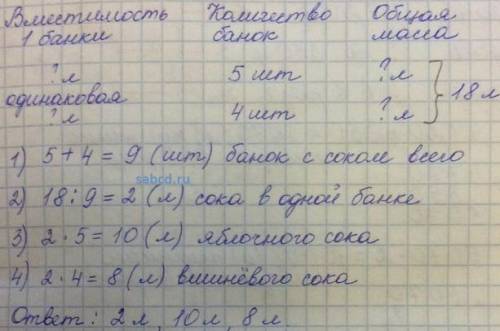 Вместимость Количество Общая
1 банки банок масса
?л 5 шт ?л
одинаковая 18 л
?л 4 шт ?л
1) 5 + 4 = 9 (шт) банок с соком всего
sabcd.ru
2) 18 : 9 = 2 (л) сока в одной банке
3) 2 · 5 = 10 (л) яблочного сока
4) 2 · 4 = 8 (л) вишнёвого сока
Ответ: 2 л, 10 л, 8 л.